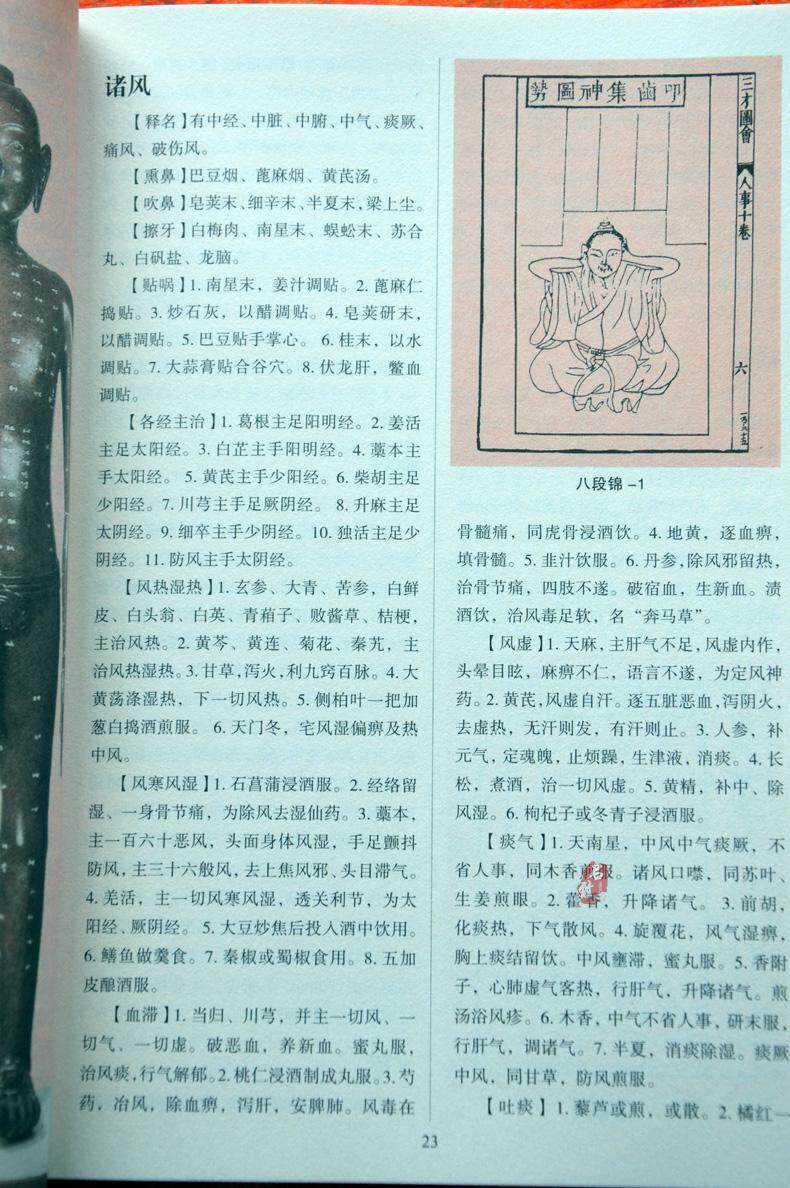 诸风
【释名】有中经、中脏、中腑、中气、痰厥、
痛风、破伤风。
【熏鼻】巴豆烟、蓖麻烟、黄芪汤。
【吹鼻】皂荚末、细辛末、半夏末，梁上尘。
【擦牙】白梅肉、南星末、蜈蚣末、苏合
丸、白矾盐、龙脑。
【贴㖞】1. 南星末，姜汁调贴。2. 蓖麻仁
捣贴。3. 炒石灰，以醋调贴。4. 皂荚研末，
以醋调贴。5. 巴豆贴手掌心。 6. 桂末，以水
调贴。7. 大蒜膏贴合谷穴。8. 伏龙肝，鳖血
调贴。
【各经主治】1. 葛根主足阳明经。2. 姜活
主足太阳经。3. 白芷主手阳明经。4. 藁本主
手太阳经。 5. 黄芪主手少阳经。6. 柴胡主足
少阳经。7. 川芎主手足厥阴经。 8. 升麻主足
太阴经。9. 细卒主手少阴经。10. 独活主足少
阴经。11. 防风主手太阴经。
【风热湿热】1. 玄参、大青、苦参，白鲜
皮、白头翁、白英、青葙子、败酱草、桔梗，
主治风热。2. 黄芩、黄连、菊花、秦艽，主
治风热湿热。3. 甘草，泻火，利九窍百脉。4. 大
黄荡涤湿热，下一切风热。5. 侧柏叶一把加
葱白捣酒煎服。 6. 天门冬，宅风湿偏痹及热
中风。
【风寒风湿】1. 石菖蒲浸酒服。2. 经络留
湿、一身骨节痛，为除风去湿仙药。3. 藁本，
主一百六十恶风，头面身体风湿，手足颤抖
防风，主三十六般风，去上焦风邪、头目滞气。
4. 羌活，主一切风寒风湿，透关利节，为太
阳经、厥阴经。 5. 大豆炒焦后投入酒中饮用。
6. 鳝鱼做羹食。7. 秦椒或蜀椒食用。8. 五加
皮酿酒服。
【血滞】1. 当归、川芎，并主一切风、一
切气、一切虚。破恶血，养新血。蜜丸服，
治风痰，行气解郁。2. 桃仁浸酒制成丸服。3. 芍
药，治风，除血痹，泻肝，安脾肺。风毒在
叩齒集神圖勢
三才圖會
人事十卷
六
八段锦 -1
骨髓痛，同虎骨浸酒饮。4. 地黄，逐血痹，
填骨髓。5. 韭汁饮服。6. 丹参，除风邪留热，
治骨节痛，四肢不遂。破宿血，生新血。渍
酒饮，治风毒足软，名“奔马草”。
【风虚】1. 天麻，主肝气不足，风虚内作，
头晕目眩，麻痹不仁，语言不遂，为定风神
药。2. 黄芪，风虚自汗。逐五脏恶血，泻阴火，
去虚热，无汗则发，有汗则止。3. 人参，补
元气，定魂魄，止烦躁，生津液，消痰。4. 长
松，煮酒，治一切风虚。5. 黄精，补中、除
风湿。6. 枸杞子或冬青子浸酒服。
【痰气】1. 天南星，中风中气痰厥，不
省人事，同木香煎服。诸风口噤，同苏叶、
生姜煎眼。2. 藿香，升降诸气。 3. 前胡，
化痰热，下气散风。4. 旋覆花，风气湿痹，
胸上痰结留饮。中风壅滞，蜜丸服。5. 香附
子，心肺虚气客热，行肝气，升降诸气。煎
汤浴风疹。6. 木香，中气不省人事，研末服，
行肝气，调诸气。7. 半夏，消痰除湿。痰厥
中风，同甘草，防风煎服。
【吐痰】1. 藜芦或煎，或散。2. 橘红一
23